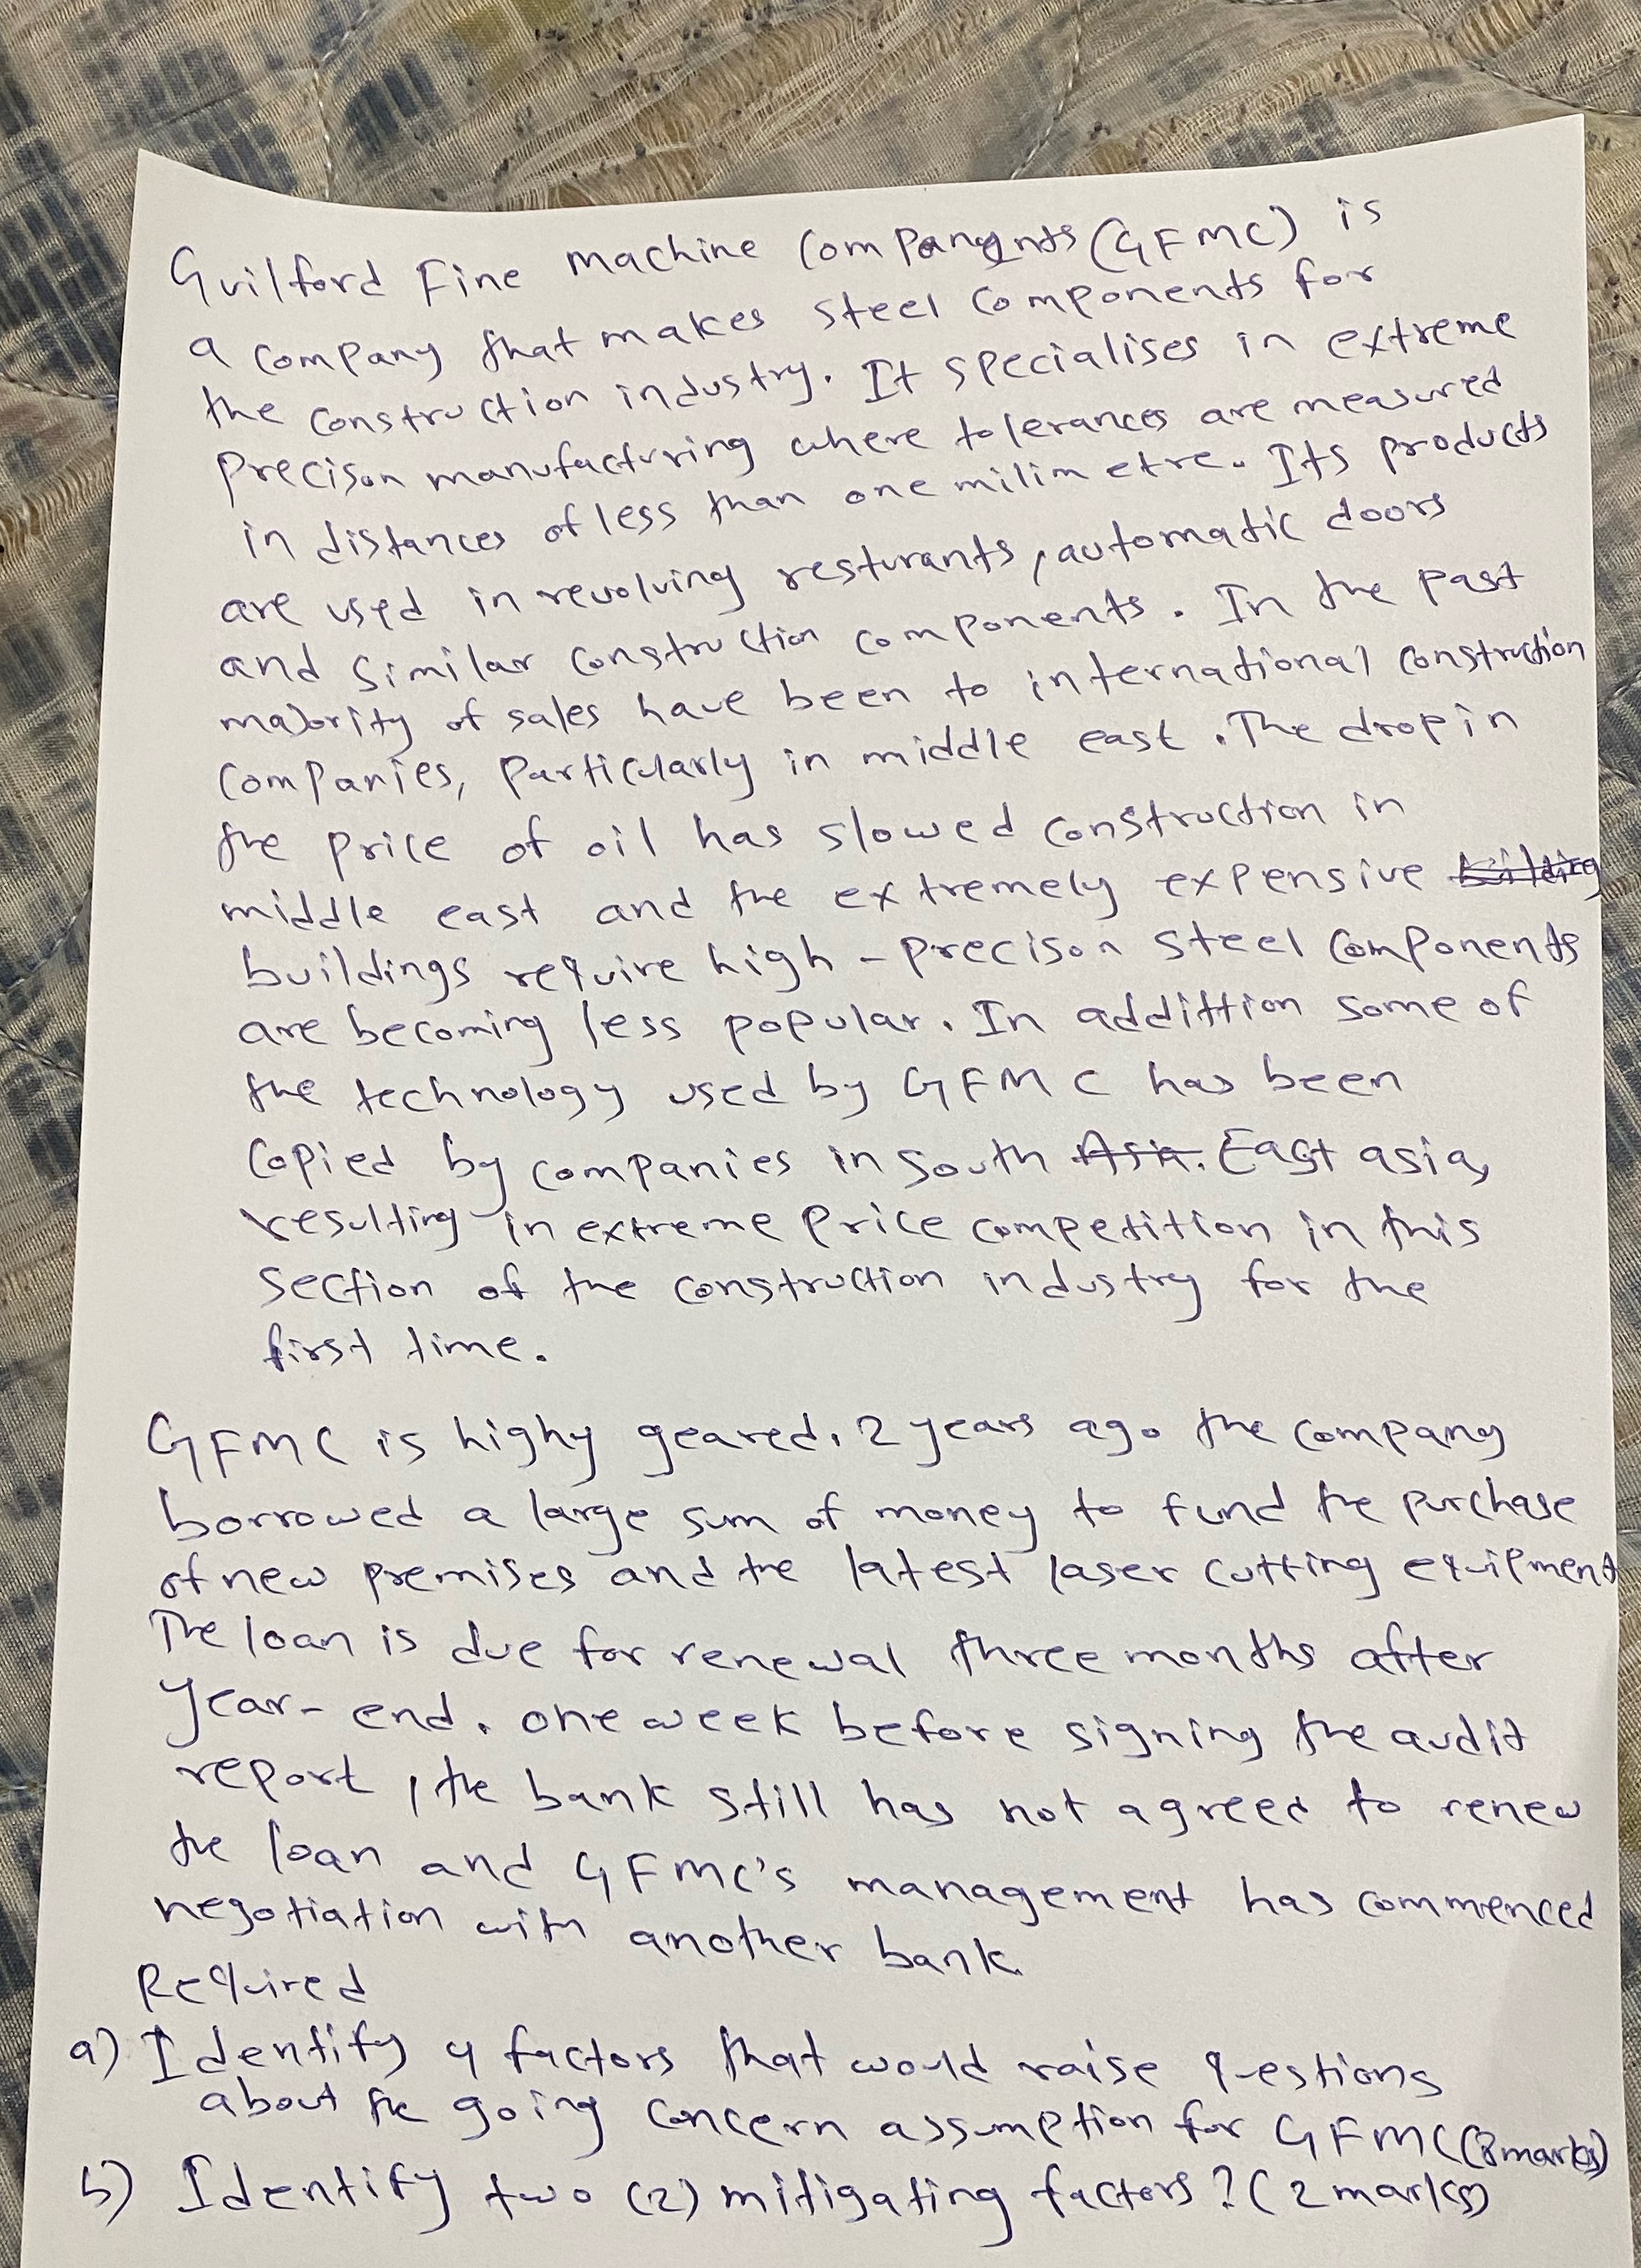 Guilford Fine machine Companents (GFMC) is
a company that makes steel components for
the construction industry. It specialises in extreme
precison manufacturing where tolerances are measured
in distances of less than one milimetre. Its products
are used in revolving resturants, automatic doors
and similar construction components. In the past
majority of sales have been to international construction
companies, particularly in middle east. The drop in
the price of oil has slowed construction in
middle east and the extremely expensive building
buildings require high-precison steel components
are becoming less popular. In addittion some of
the technology used by GFMC has been
copied by companies in South Asia. East asia,
resulting in extreme price competition in this
section of the construction industry for the
first time.
GFMC is highy geared. 2 years ago the company
borrowed a large sum of money to fund the purchase
of new premises and the latest laser cutting equipment
The loan is due for renewal three months after
year-end. one week before signing the audit
report, the bank still has not agreed to renew
the loan and GFMC's management has commenced
negotiation with another bank.
Required
a) Identify 4 factors that would raise questions
about the going concern assumption for GFMC (8 marks)
b) Identify two (2) mitigating factors? (2 marks)